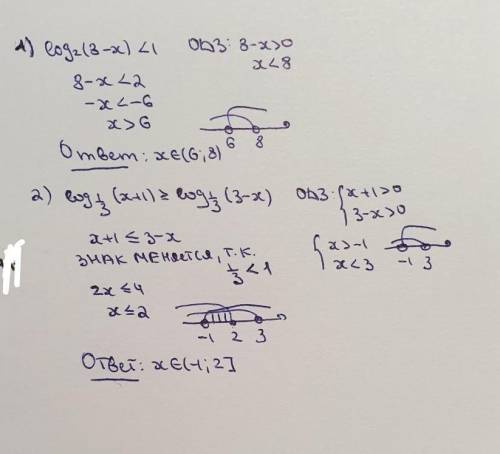 1) log₂(8-x) <1 ОДЗ: 8-x>0
x<8
8-x<2
-x<-6
x>6
6 8
Ответ: x∈(6;8)
2) log₁/₃(x+1) ≥ log₁/₃(3-x) ОДЗ: { x+1>0
3-x>0
x+1 ≤ 3-x
{ x>-1
x<3
-1 3
ЗНАК МЕНЯЕТСЯ, Т.К.
1/3 < 1
2x ≤ 4
x ≤ 2
-1 2 3
Ответ: x∈(-1;2]